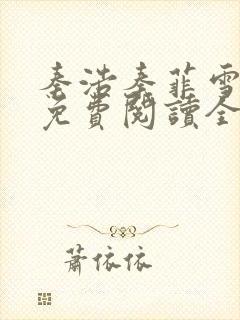 秦浩秦菲雪
免費閱讀全
蕭依依